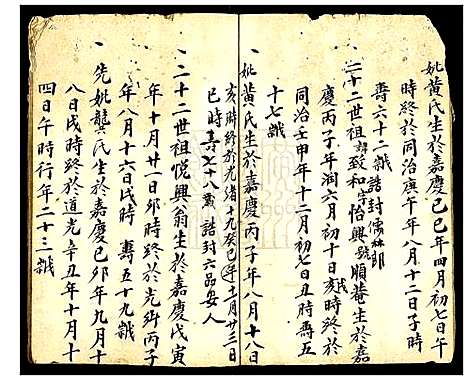 妣黃氏生於嘉慶己巳年四月初七日午
時終於同治庚午年八月十二日子時
壽六十二歲誥封儒林郎
二十二世祖諱致和字怡興號順菴生於嘉
慶丙子年潤六月初十日亥時終於
同治壬申年十二月初七日丑時壽五
十七歲
妣黃氏生於嘉慶丙子年八月十八日
亥時終於光緒十九癸巳年十二月廿三日
巳時壽七十八歲誥封六品安人
二十二世祖悅興翁生於嘉慶戊寅
年十月廿一日卯時終於光緒丙子
年八月十六日戌時壽五十九歲
先妣龔氏生於嘉慶己卯年九月十
八日戌時終於道光辛丑年十月十
四日午時行年二十三歲